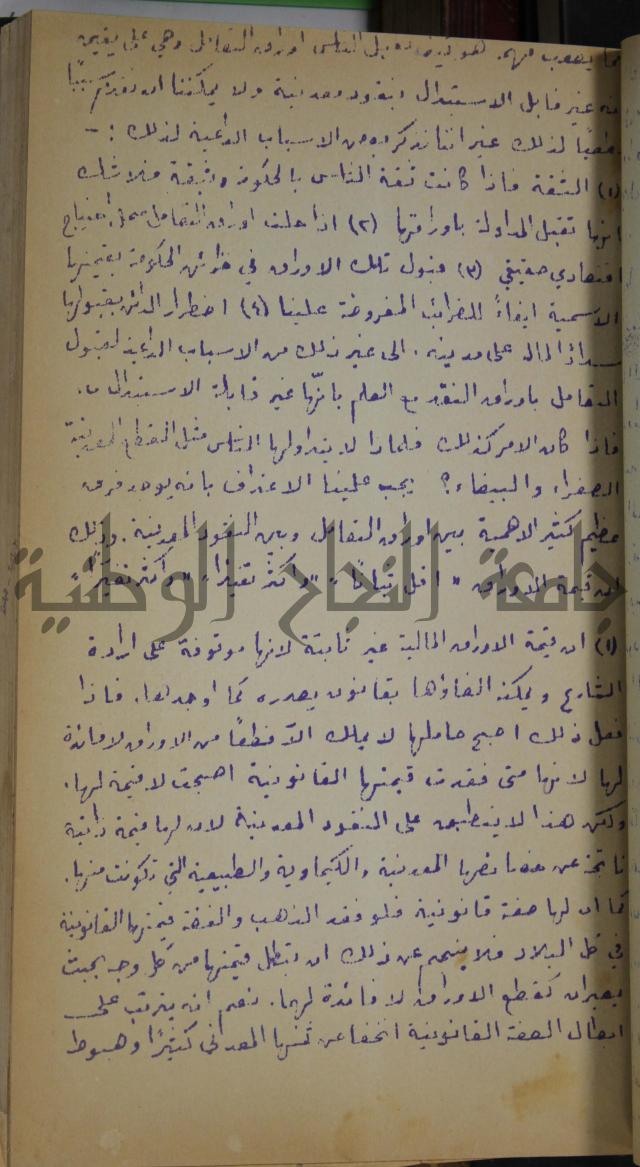 مما يصعب فهمه. هو كيف يقبل الناس اوراق التعامل وهي على يقين
انه غير قابل الاستبدال بنقود معدنية ولا يمكننا ان نقدم سببًا
قطعيًا لذلك غير اننا نذكر بعض الاسباب الداعية لذلك :-
(١) الثقة فاذا كانت ثقة الناس بالحكومة وثيقة فلا شك
انها تقبل المداولة باوراقها (٢) اذا حلت اوراق التعامل محل احتياج
اقتصادي حقيقي (٣) قبول تلك الاوراق في خزائن الحكومة بقيمتها
الاسمية ايفاءً للضرائب المفروضة علينا (٤) اضطرار الدائن بقبولها
سدادًا لماله على مدينه. الى غير ذلك من الاسباب الداعية لقبول
التعامل باوراق النقد مع العلم بانّها غير قابلة الاستبدال.
فاذا كان الامر كذلك فلماذا لا يتداولها الناس مثل القطع المعدنية
الصفراء والبيضاء؟ يجب علينا الاعتراف بانه يوجد فرق
عظيم كثير الاهمية بين اوراق التعامل وبين النقود المعدنية. وذلك
ان قيمة الاوراق " اقل ثباتًا " " واكثر تقيدًا " " واكثر تغيرًا "
جامعة النجاح الوطنية
(١) ان قيمة الاوراق المالية غير ثابتة لانها موقوفة على ارادة
الشارع ويمكنه الغاؤها بقانون يصدره كما اوجدها. فاذا
فعل ذلك اصبح حاملها لا يملك الّا قطعًا من الاوراق لا فائدة
لها لانها متى فقدت قيمتها القانونية اصبحت لا قيمة لها.
ولكن هذا لا ينطبق على النقود المعدنية لان لها قيمة ذاتية
ناتجة عن خصائصها المعدنية والكيماوية والطبيعية التي تكونت منها.
كما ان لها صفة قانونية فلو فقد الذهب والفضة قيمتها القانونية
في كل البلاد فلا ينجم عن ذلك ان تبطل قيمتها من كل وجه بحيث
يصيران كقطع الاوراق لا فائدة لهما. نعم انه يترتب على
ابطال الصفة القانونية انخفاض ثمنها المعدني كثيرًا وهبوط